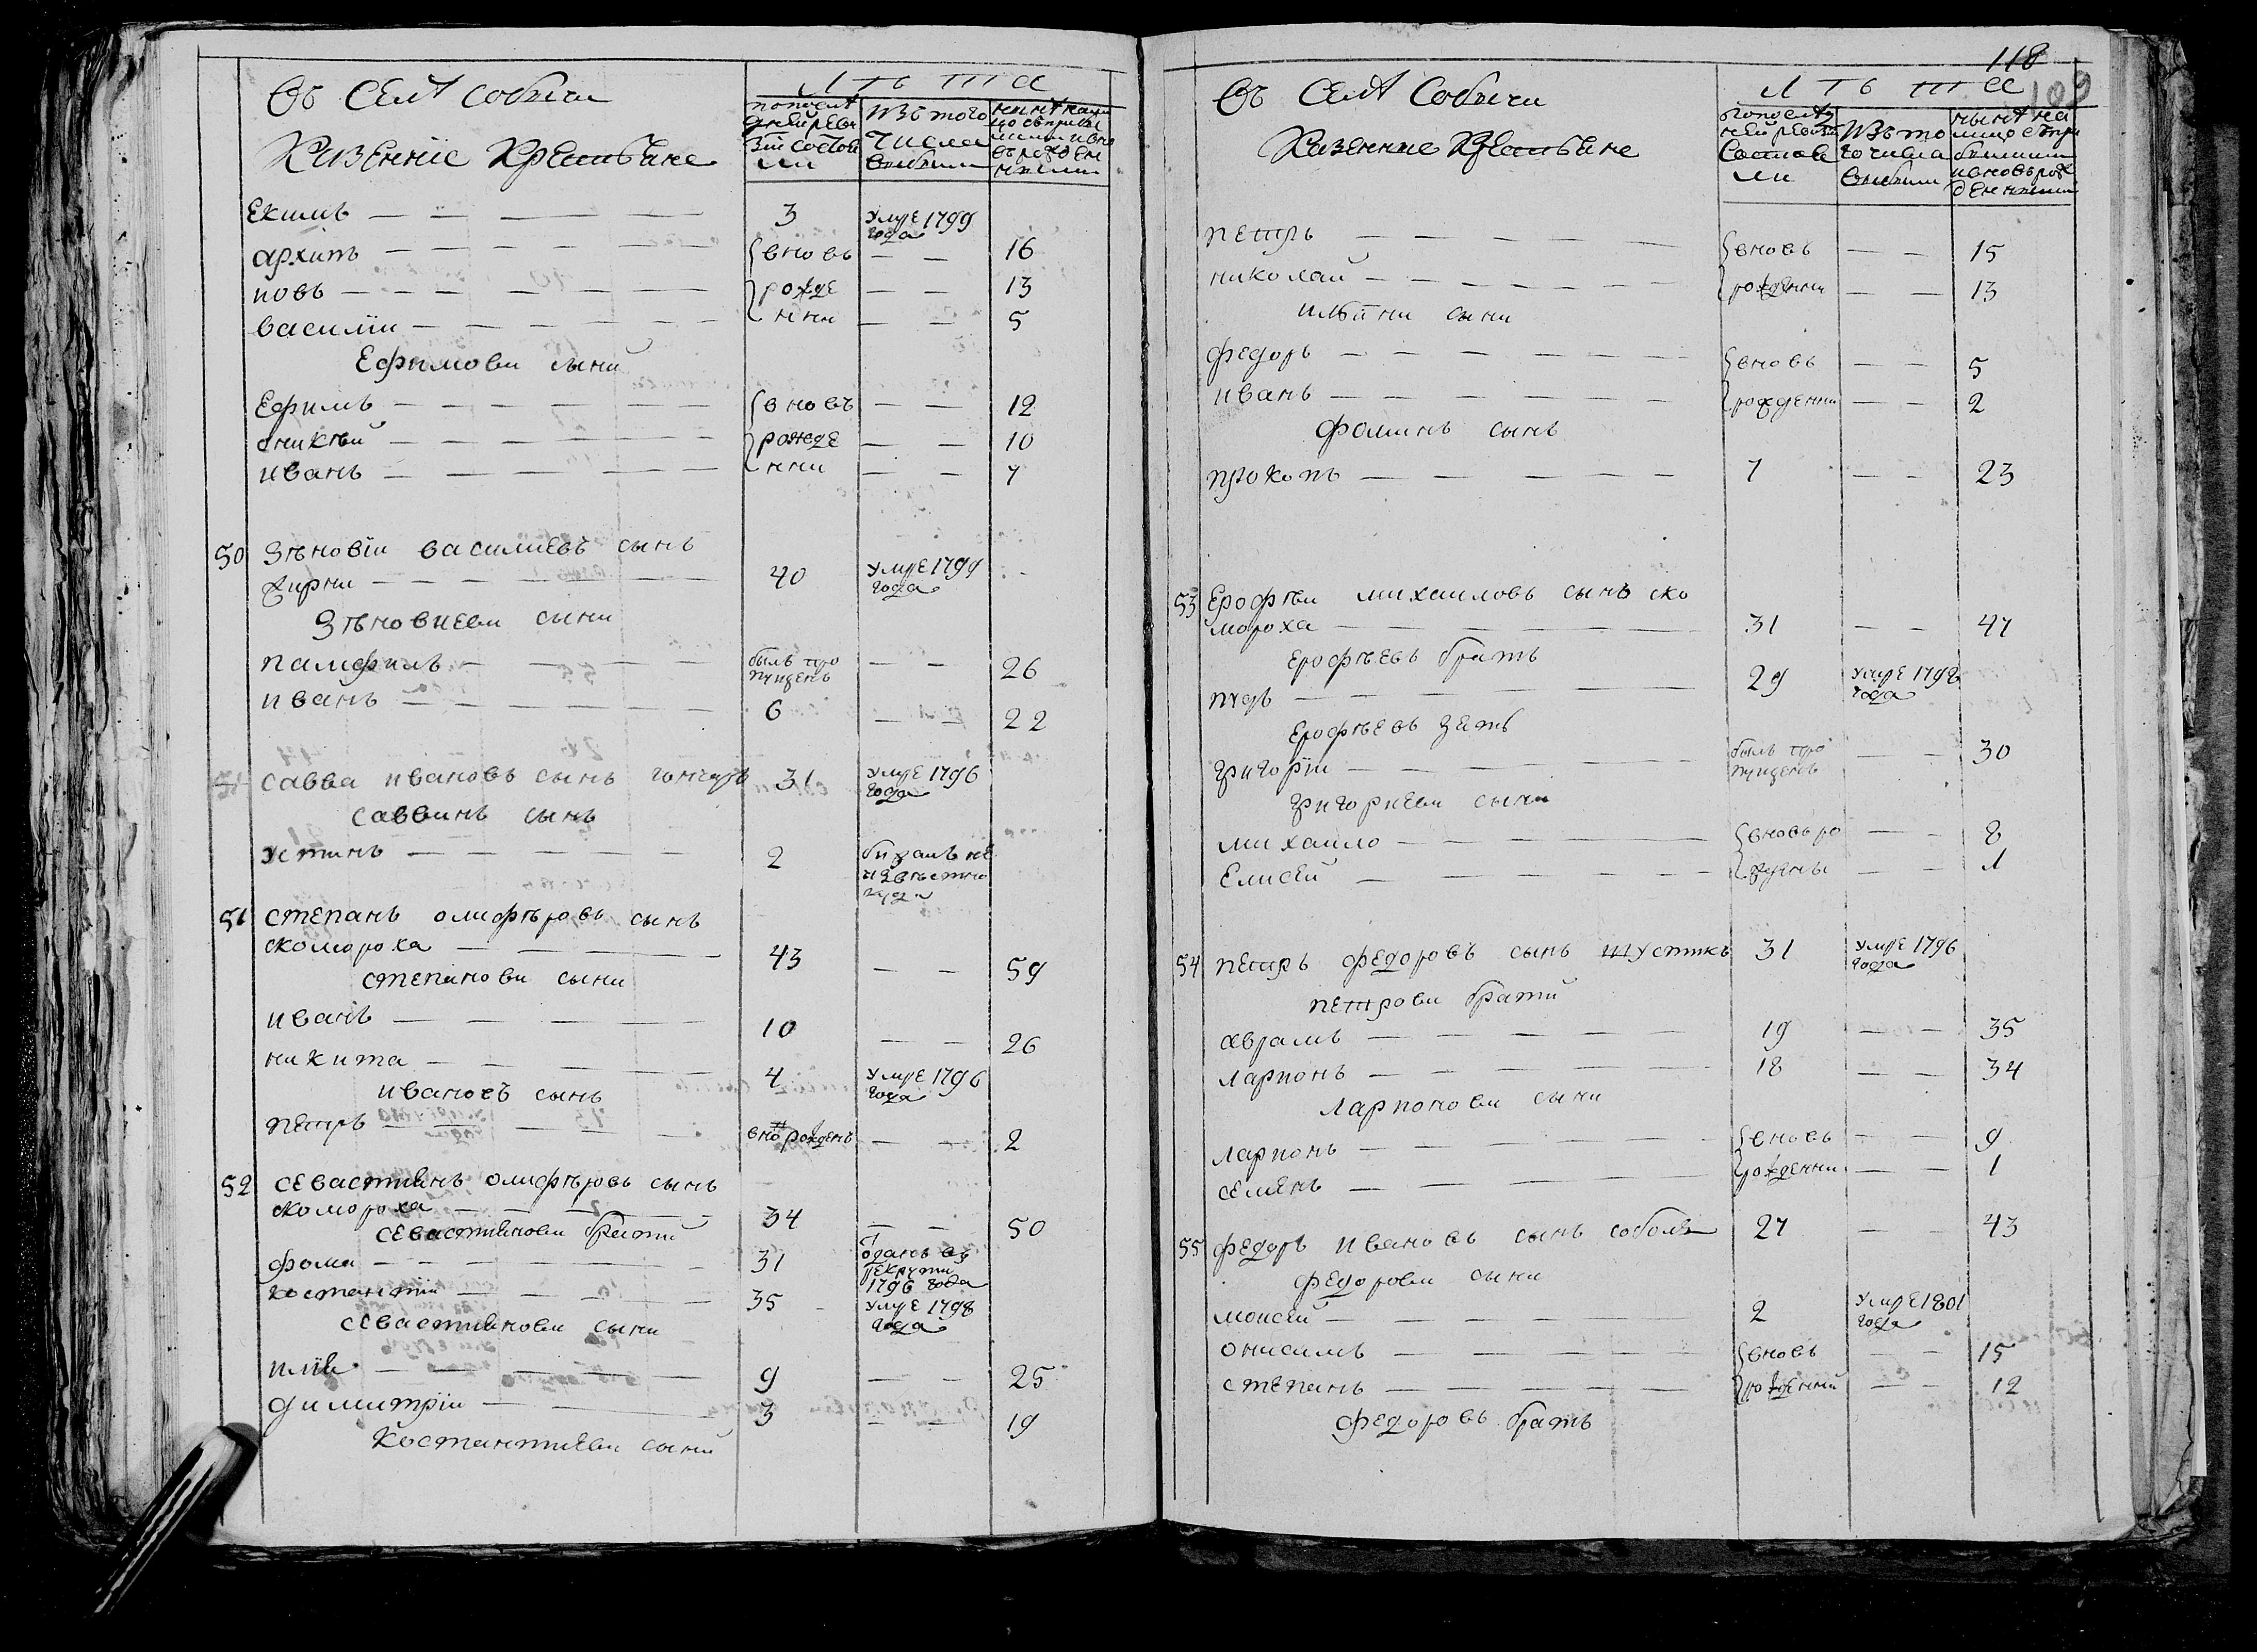 Въ Селѣ Собычи
Казенніе Крестьяне
Лѣта
по последней ревизіи состояли
изъ того числа выбыли
нынѣ налицо съ прибылыми и вновь рожденными
Екимъ 3 умре 1799 года
архипъ вновь 16
иовъ рожде 13
василіи нни 5
Ефимови сыни
Ефимъ вновъ 12
аникѣй рожде 10
иванъ нни 7
50 Зѣновіи василиевъ сынъ
жирни 40 умре 1799 года
Зѣновиеви сыни
памфилъ былъ пропущенъ 26
иванъ 6 22
савва ивановъ сынъ гончаръ 31 умре 1796 года
саввинъ сынъ
устинъ 2 бижалъ неизвѣстно куди
51 степанъ олифѣровъ сынъ
скомороха 43 59
степанови сыни
иванъ 10 26
никита 4 умре 1796 года
ивановъ сынъ
петръ внорожденъ 2
52 севастиянъ олифѣровъ сынъ
скомороха 34 50
севастиянови братий
фома 31 оданъ въ рекрути 1796 года
костантіи 35 умре 1798 года
севастиянови сыни
илія 9 25
димитріи 3 19
Костантиеви сыни
118
109
Въ Селѣ Собычи
Казенние Крестьяне
Лѣта
по последней ревизіи состояли
изъ того числа выбыли
нынѣ налицо съ прибылими и вновь рожденними
петръ вновь 15
николай рожденни 13
ильини сыни
федоръ вновь 5
иванъ рожденни 2
фоминъ сынъ
прокопъ 7 23
53 Ерофѣи михаиловъ сынъ ско
мороха 31 47
ерофѣевъ братъ
пудъ 29 умре 1798 года
ерофѣевъ зять
григоріи былъ пропущенъ 30
григориеви сыни
михаило вновь ро 8
Елисей жденъ 1
54 петръ федоровъ сынъ шустикъ 31 умре 1796 года
петрови братий
аврамъ 19 35
ларионъ 18 34
ларионови сыни
ларионъ вновь 9
семенъ рожденни 1
55 федоръ ивановъ сынъ соболя 27 43
федорови сыни
моисей 2 умре 1801 года
онисимъ вновь 15
степанъ рожденний 12
федоровъ братъ